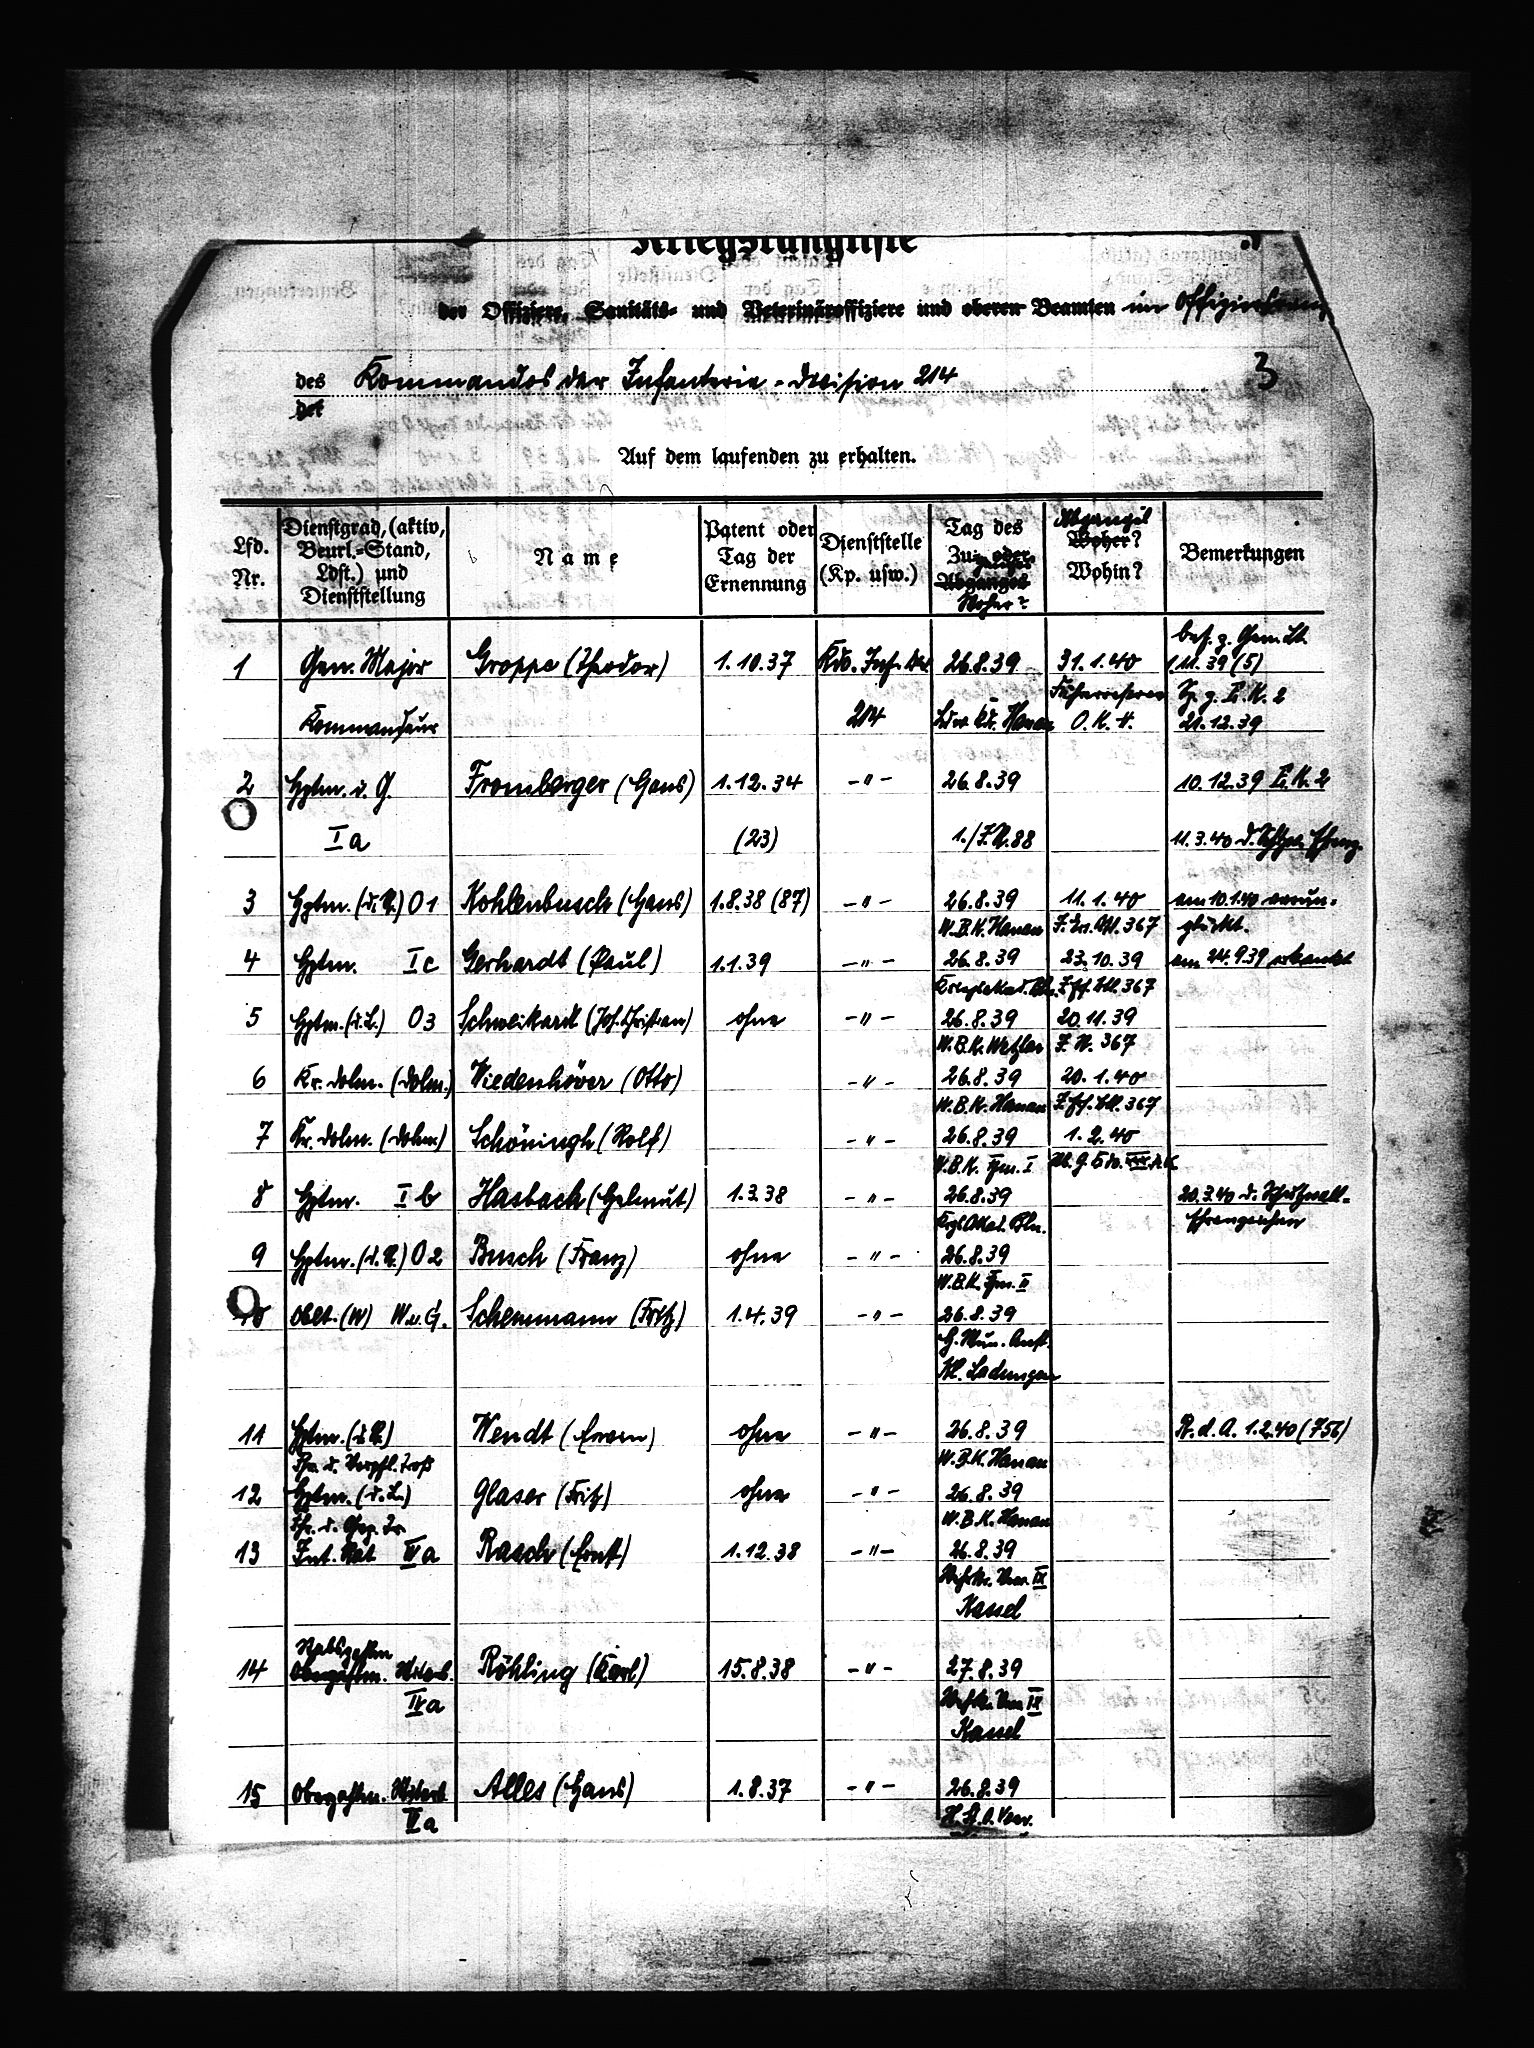 Kriegsrangliste
der Offiziere, Sanitäts- und Veterinäroffiziere und oberen Beamten im Offizierrang
des Kommandos der Infanterie-Division 214 3
der
Auf dem laufenden zu erhalten.
Lfd. Nr. | Dienstgrad, (aktiv, Beurl.-Stand, Ldst.) und Dienststellung | Name | Patent oder Tag der Ernennung | Dienststelle (Kp. usw.) | Tag des Zuganges oder Abganges Woher? | Abgangs Woher? Wohin? | Bemerkungen
bef. z. Gen. Lt.
1 Gen. Major Groppe (Theodor) 1.10.37 Kdo. Inf. Div. 26.8.39 31.1.40 1.11.39 (5)
Führerreserve Sp. z. E.K. 2
Kommandeur 214 Ldw. Kdr. Hanau O.K.H. 21.12.39
2 Hptm. i. G. Fromberger (Hans) 1.12.34 -"- 26.8.39 10.12.39 E.K. 2
Ia (23) 1./I.R. 88 11.3.40 d. Schtzw. Ehrenz.
3 Hptm. (d.R.) O1 Kohlenbusch (Hans) 1.8.38 (87) -"- 26.8.39 11.1.40 am 10.1.40 verun-
W.B.K. Hanau 367 glückt.
4 Hptm. Ic Gerhardt (Paul) 1.1.39 -"- 26.8.39 23.10.39 am 24.9.39 erkrankt
367
5 Hptm. (d.L.) O3 Schweikardt (Joh. Christian) ohne -"- 26.8.39 20.11.39
W.B.K. Wetzlar I.R. 367
6 Kr. Dolm. (Dolm.) Wiedenhöver (Otto) -"- 26.8.39 20.1.40
W.B.K. Hanau 367
7 Kr. Dolm. (Dolm.) Schöningh (Rolf) -"- 26.8.39 1.2.40
W.B.K. Ffm. I
8 Hptm. Ib Hasbach (Helmut) 1.3.38 -"- 26.8.39 20.3.40 d. Schutzwall-
Krgs. Akad. Bln. Ehrenzeichen
9 Hptm. (d.R.) O2 Busch (Franz) ohne -"- 26.8.39
W.B.K. Ffm. II
10 Oblt. (W) W.u.G. Schemmann (Fritz) 1.4.39 -"- 26.8.39
H. Mun. Anst.
11 Hptm. (d.R.) Wendt (Erwin) ohne -"- 26.8.39 R.d.A. 1.2.40 (756)
Fhr. d. Verpfl. Troß W.B.K. Hanau
12 Hptm. (d.L.) Glaser (Fritz) ohne -"- 26.8.39
Fhr. d. Gep. Tr. W.B.K. Hanau
13 Int. Rat IVa Rasch (Ernst) 1.12.38 -"- 26.8.39
Wehrkr. Verw. IX
Kassel
Stabszahlm.
14 Oberzahlm. IVa Röhling (Karl) 15.8.38 -"- 27.8.39
Wehrkr. Verw. IX
Kassel
15 Oberzahlm. Alles (Hans) 1.8.37 -"- 26.8.39
IVa H.St.O. Verw.